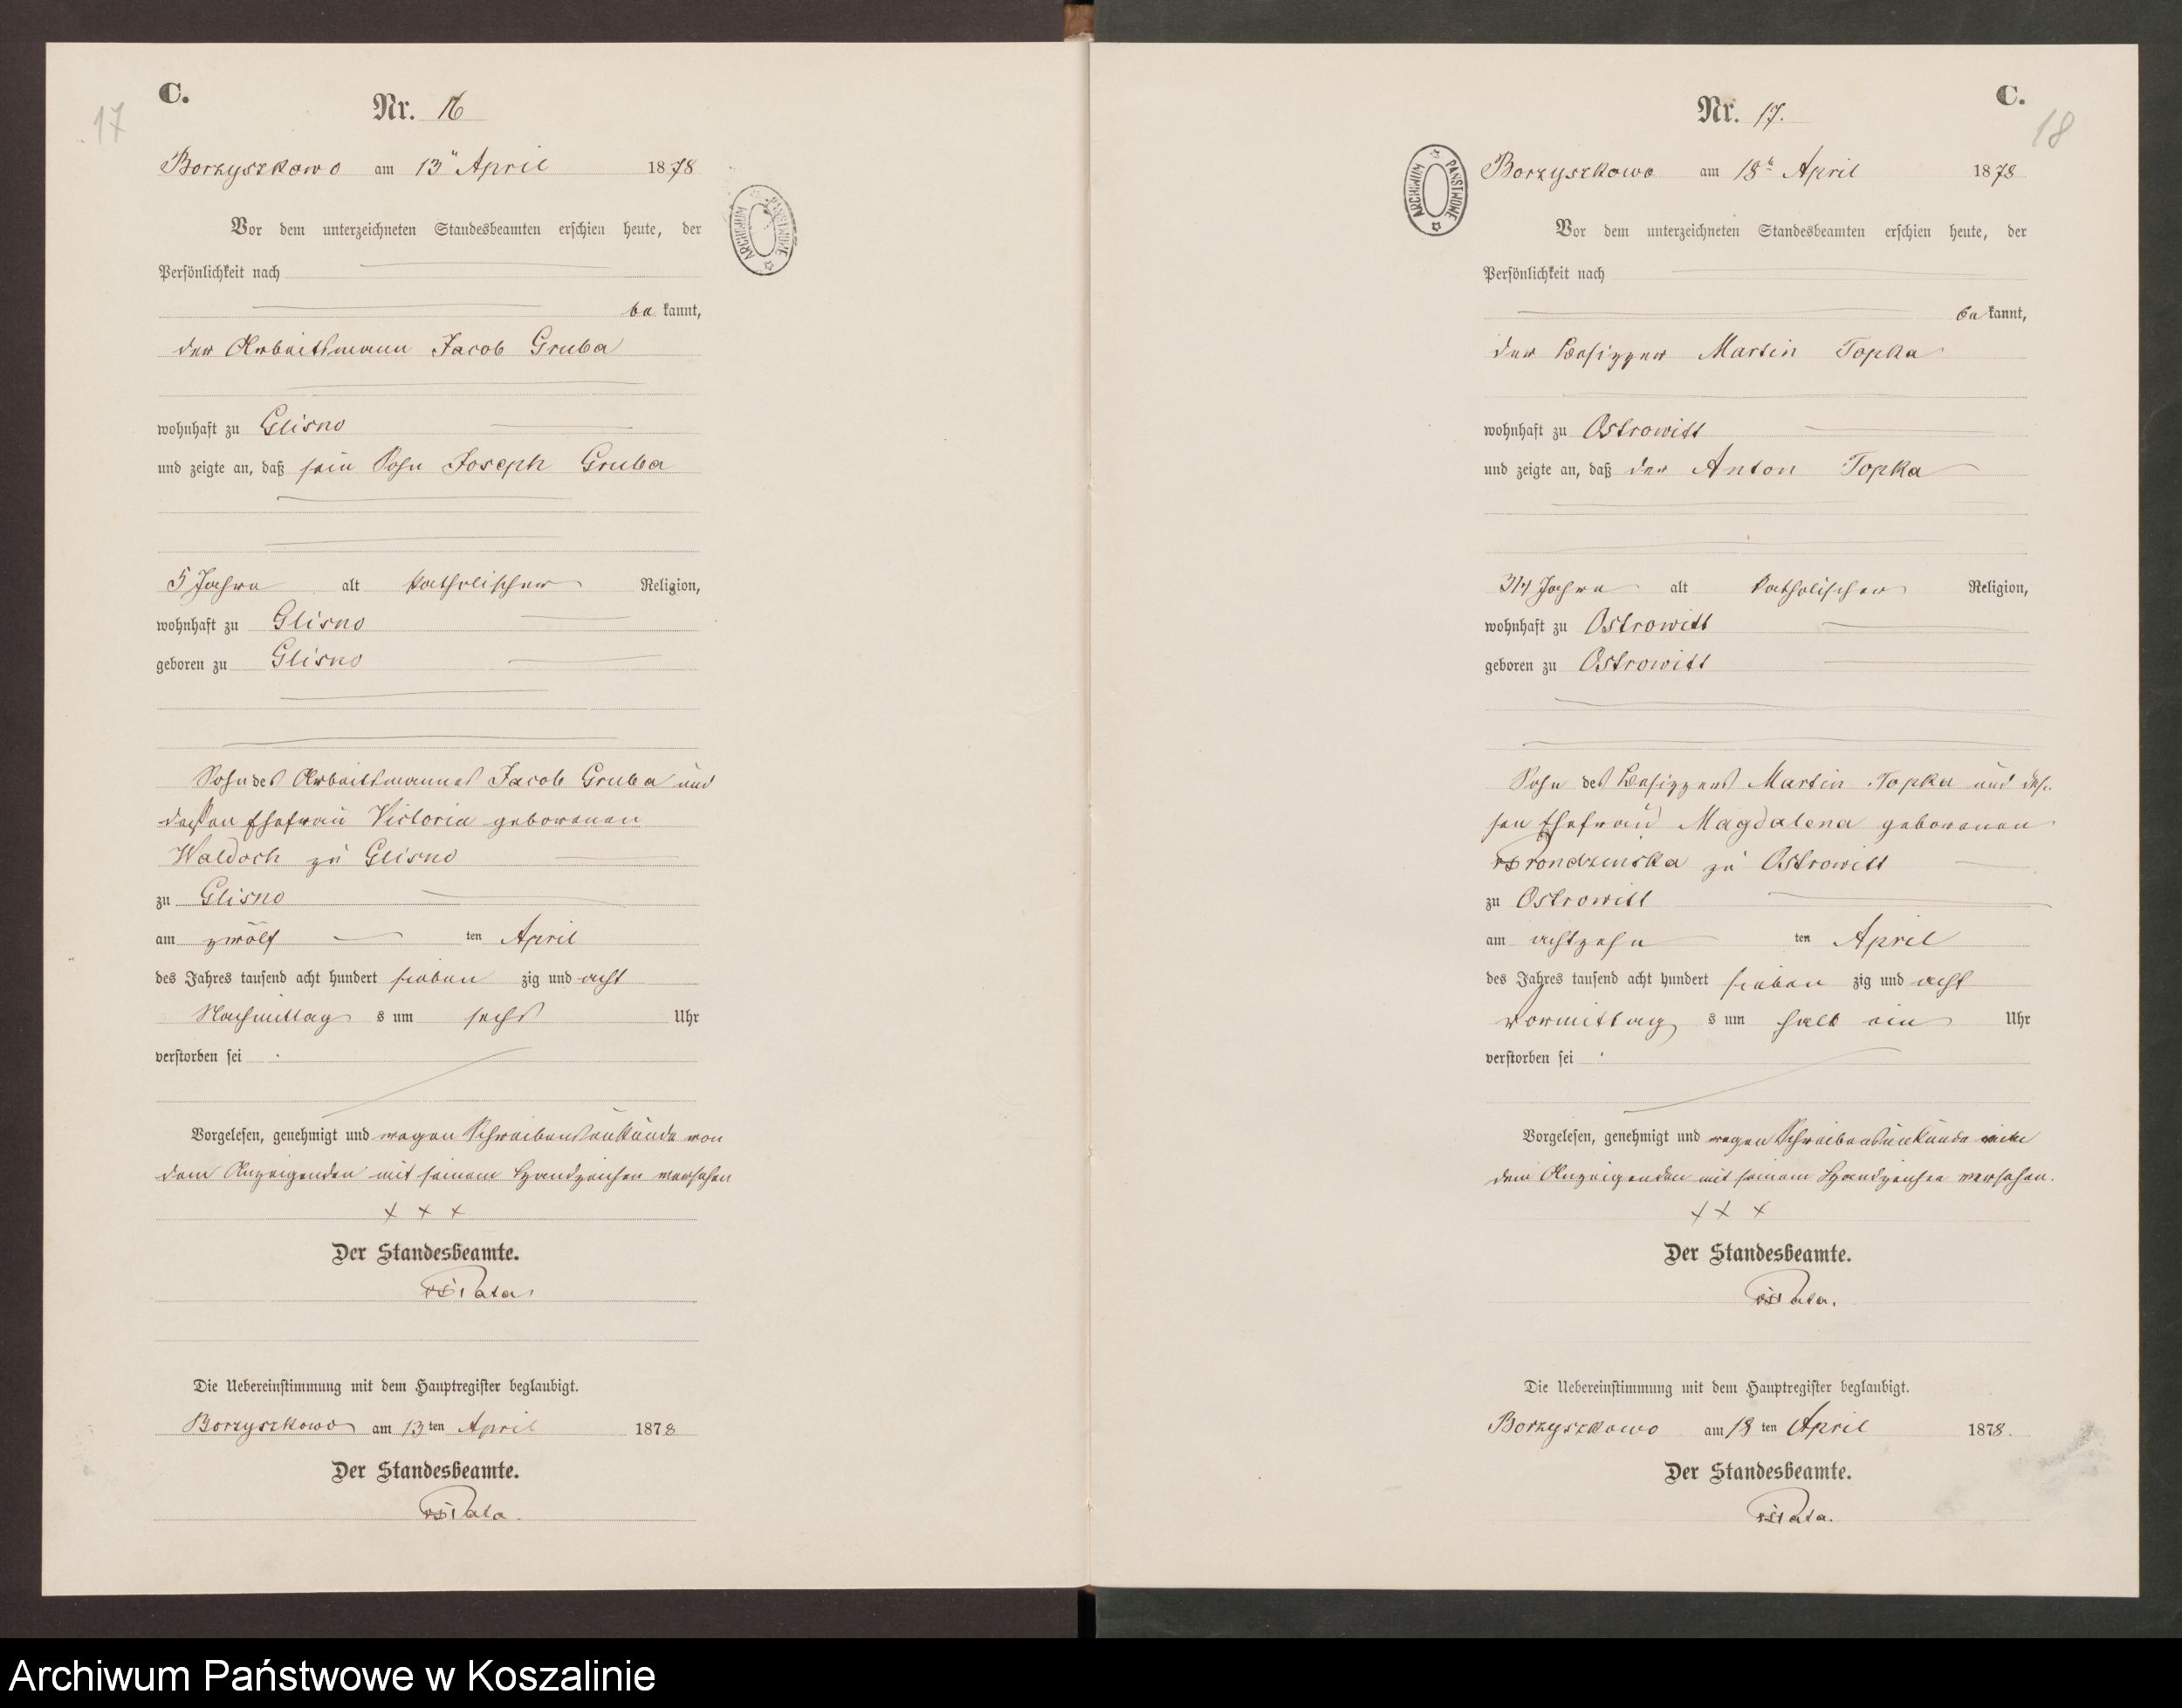 17
C.
Nr. 16
Borzyszkowo am 13ten April 1878
Vor dem unterzeichneten Standesbeamten erschien heute, der
Persönlichkeit nach
be kannt,
der Arbeitsmann Jacob Gruba
wohnhaft zu Glisno
und zeigte an, daß sein Sohn Joseph Gruba
5 Jahre alt katholischer Religion,
wohnhaft zu Glisno
geboren zu Glisno
Sohn des Arbeitsmannes Jacob Gruba und
dessen Ehefrau Victoria geborenen
Waldoch zu Glisno
zu Glisno
am zwölf ten April
des Jahres tausend acht hundert sieben zig und acht
Nachmittag s um sechs Uhr
verstorben sei .
Vorgelesen, genehmigt und wegen Schreibensunkunde von
dem Anzeigenden mit seinem Handzeichen versehen
+ + +
Der Standesbeamte.
Die Uebereinstimmung mit dem Hauptregister beglaubigt.
Borzyszkowo am 13 ten April 1878
Der Standesbeamte.
ARCHIWUM PAŃSTWOWE
C.
18
Nr. 17.
Borzyszkowo am 18t April 1878
Vor dem unterzeichneten Standesbeamten erschien heute, der
Persönlichkeit nach
be kannt,
der Besitzer Martin Topka
wohnhaft zu Ostrowitt
und zeigte an, daß der Anton Topka
3/4 Jahre alt katholischer Religion,
wohnhaft zu Ostrowitt
geboren zu Ostrowitt
Sohn des Besitzers Martin Topka und des-
sen Ehefrau Magdalena geborenen
Prondzinska zu Ostrowitt
zu Ostrowitt
am achtzehn ten April
des Jahres tausend acht hundert sieben zig und acht
Vormittag s um halb ein Uhr
verstorben sei .
Vorgelesen, genehmigt und wegen Schreibensunkunde
dem Anzeigenden mit seinem Handzeichen versehen.
+ + +
Der Standesbeamte.
Die Uebereinstimmung mit dem Hauptregister beglaubigt.
Borzyszkowo am 18 ten April 1878.
Der Standesbeamte.
ARCHIWUM PAŃSTWOWE
Archiwum Państwowe w Koszalinie